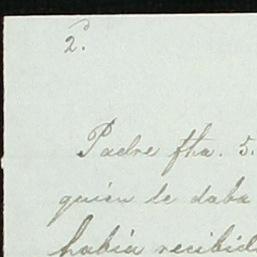 2.
Padre fha. 5.
quien le daba
habia recibid